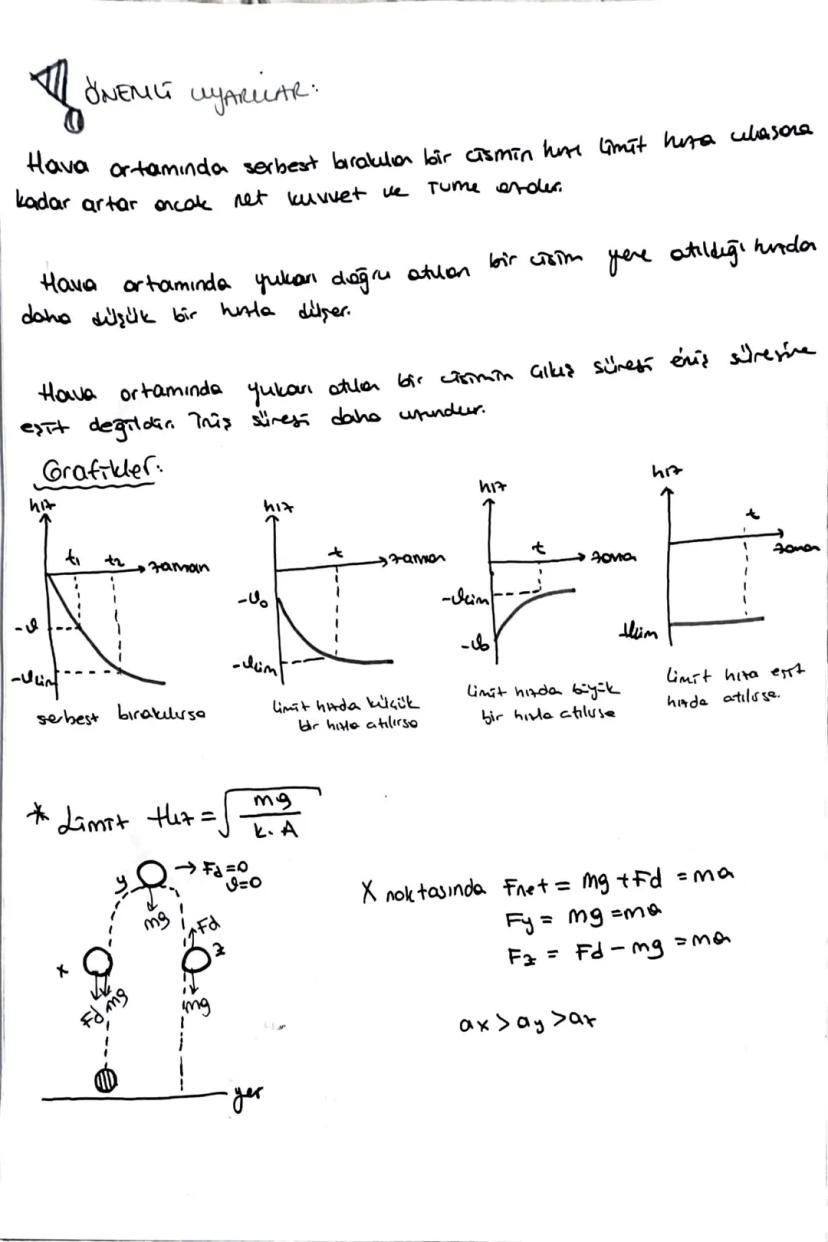 ÖNEMLİ UYARILAR:
Hava ortamında serbest bırakılan bir cismin hızı limit hıza ulaşana
kadar artar ancak net kuvvet ve ivme azalır.
Hava ortamında yukarı doğru atılan bir cisim yere atıldığı hızdan
daha düşük bir hızla düşer.
Hava ortamında yukarı atılan bir cismin çıkış süresi iniş süresine
eşit değildir. İniş süresi daha uzundur.
Grafikler:
hız
t1
t2
zaman
-v
-vlim
serbest bırakılırsa
hız
t
zaman
-v0
-vlim
limit hızda küçük
bir hızla atılırsa
hız
t
zaman
-vlim
-v0
limit hızda büyük
bir hızla atılırsa
hız
t
zaman
-vlim
limit hıza eşit
hızda atılırsa.
* Limit Hız = √mg / k.A
y
→ Fd=0
v=0
mg
x
Fd
mg
Fd
z
mg
yer
X noktasında Fnet = mg + Fd = ma
Fy = mg = ma
Fz = Fd - mg = ma
ax > ay > az